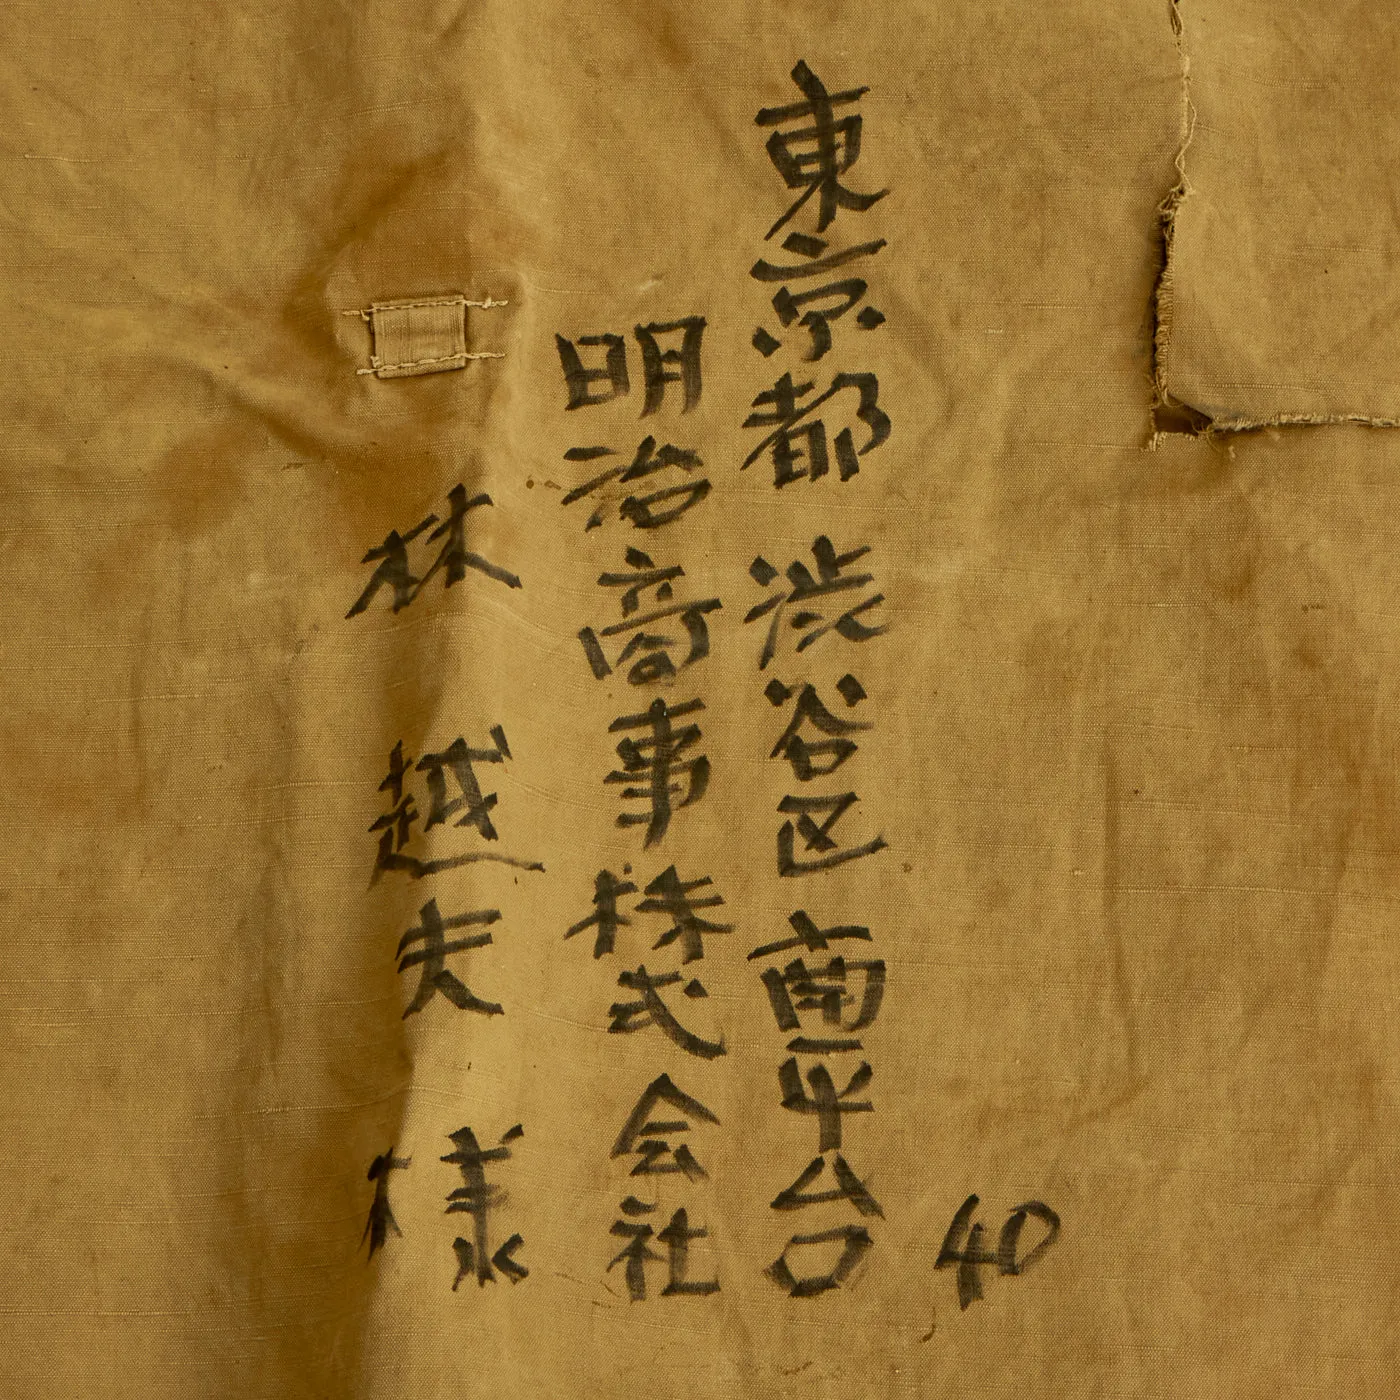 東京都 渋谷区 南平台
40
明治商事株式会社
林 越夫 様